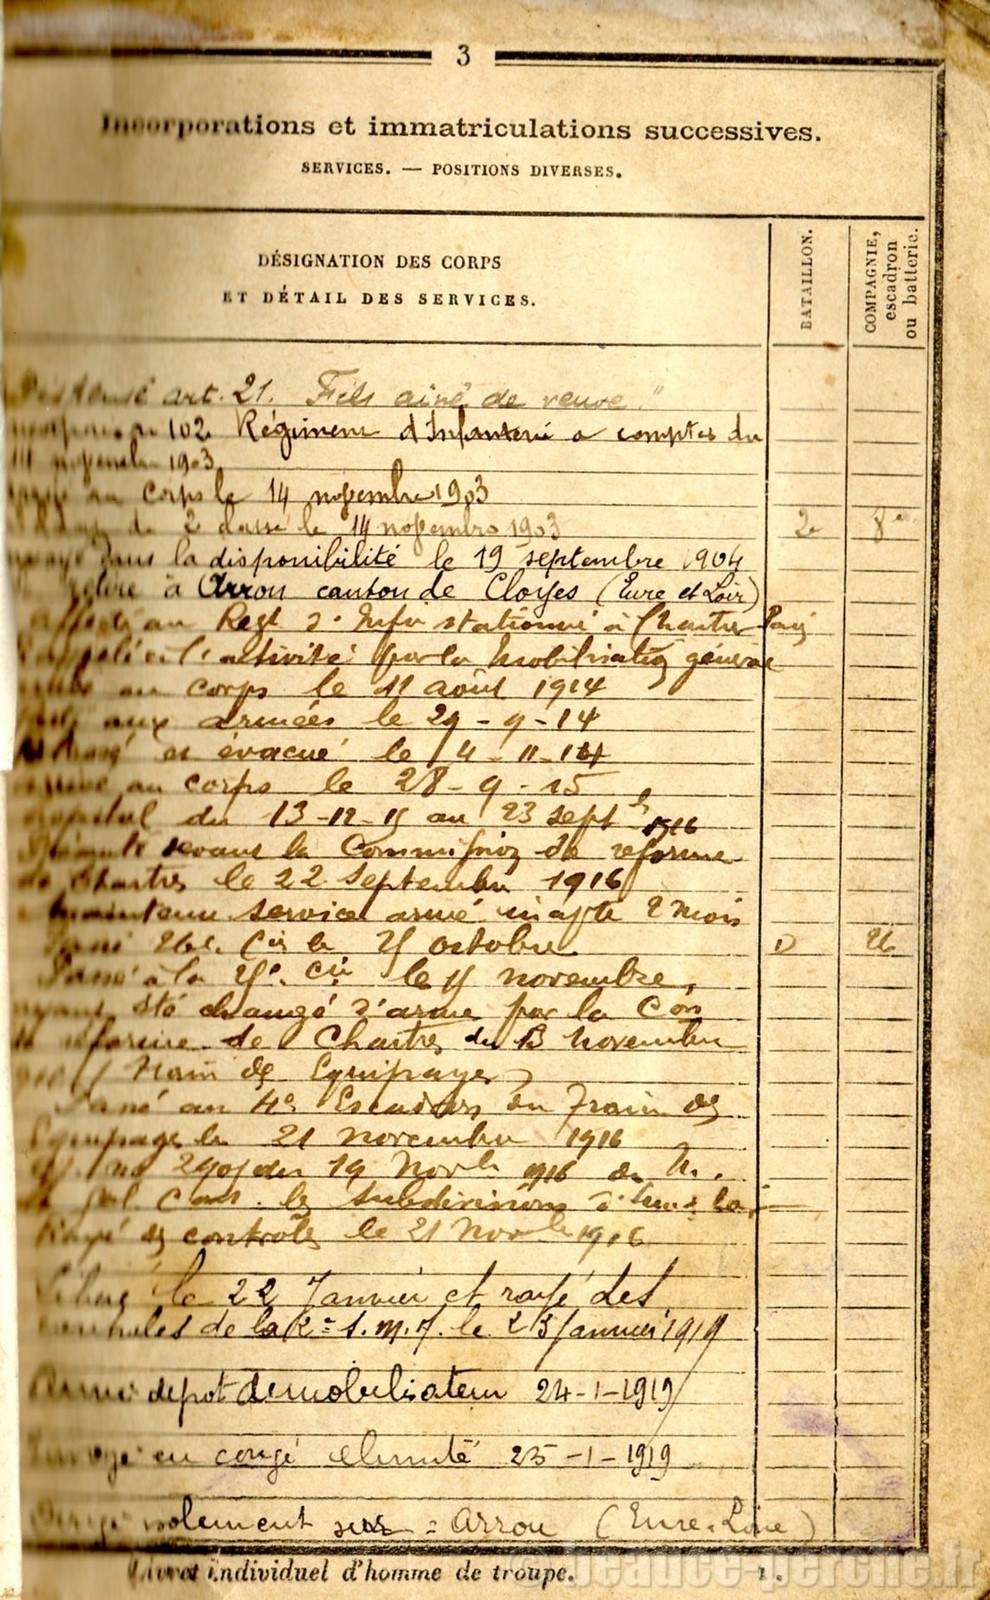 3
Incorporations et immatriculations successives.
SERVICES. — POSITIONS DIVERSES.
DÉSIGNATION DES CORPS
ET DÉTAIL DES SERVICES.
BATAILLON.
COMPAGNIE,
escadron
ou batterie.
art. 21. Fils ainé de veuve."
102e Régiment d'Infanterie a compter du
novembre 1903
au corps le 14 novembre 1903
de 2e classe le 14 novembre 1903 2e 8e
dans la disponibilité le 19 septembre 1904
à Arrou canton de Cloyes (Eure et Loir)
au Regt d'Infie stationné à Chartres
Rappelé à l'activité par la mobilisation générale
au corps le 11 août 1914
aux armées le 29-9-14
et évacué le 4-11-14
arrivé au corps le 28-9-15
du 13-12-15 au 23 sept 1916
devant la Commission de réforme
de Chartres le 22 Septembre 1916
maintenu service armé inapte 2 mois
Passé 26e Cie le octobre D 26
Passé à la Cie le novembre,
ayant été changé d'arme par la Con
de réforme de Chartres du 13 novembre
Train des Equipages)
Passé au 4e Escadron du Train des
Equipages le 21 novembre 1916
19 Novbre 1916 du
Gal Comt les subdivisions d'Eure
Rayé des controles le 21 Novbre 1916
Libéré le 22 Janvier et rayé des
controles de la le 23 Janvier 1919
Arrivé depot demobilisateur 24-1-1919
Envoyé en congé illimité 25-1-1919
Dirigé isolement sur = Arrou (Eure-Loire)
Livret individuel d'homme de troupe.
1.
beauce-perche.fr